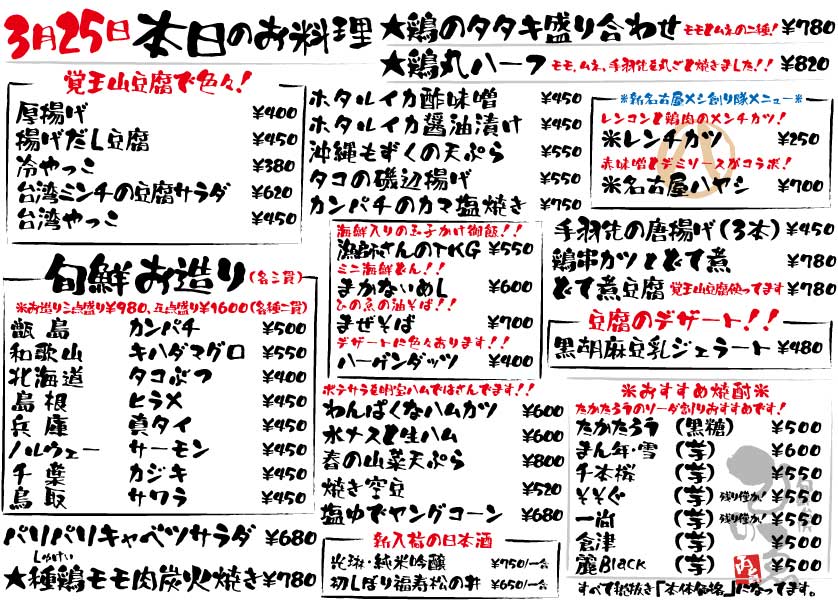 3月25日 本日のお料理
★鶏のタタキ盛り合わせ モモとムネの二種! ¥780
★鶏丸ハーフ モモ、ムネ、手羽先を丸ごと焼きました!! ¥820
覚王山豆腐で色々!
厚揚げ ¥400
揚げだし豆腐 ¥450
冷やっこ ¥380
台湾ミンチの豆腐サラダ ¥620
台湾やっこ ¥450
旬鮮お造り(各三貫)
※お造り三点盛り¥980、五点盛り¥1600(各種二貫)
甑島 カンパチ ¥500
和歌山 キハダマグロ ¥550
北海道 タコぶつ ¥400
島根 ヒラメ ¥450
兵庫 真タイ ¥450
ノルウェー サーモン ¥450
千葉 カジキ ¥450
鳥取 サワラ ¥450
パリパリキャベツサラダ ¥680
しゅけい
★種鶏モモ肉炭火焼き ¥780
ホタルイカ酢味噌 ¥450
ホタルイカ醤油漬け ¥450
沖縄もずくの天ぷら ¥550
タコの磯辺揚げ ¥550
カンパチのカマ塩焼き ¥750
海鮮入りの玉子かけ御飯!!
漁師さんのTKG ¥550
ミニ海鮮どん!!
まかないめし ¥600
ひの魚の油そば!!
まぜそば ¥700
デザートに色々あります!!
ハーゲンダッツ ¥400
ポテサラを明宝ハムではさんでます!!
わんぱくなハムカツ ¥600
水ナスと生ハム ¥600
春の山菜天ぷら ¥800
焼き空豆 ¥520
塩ゆでヤングコーン ¥680
新入荷の日本酒
光琳・純米吟醸 ¥750/一合
初しぼり福寿松の井 ¥650/一合
※新名古屋メシ創り隊メニュー※
レンコンと鶏肉のメンチカツ!
※レンチカツ ¥250
赤味噌とデミソースがコラボ!
※名古屋ハヤシ ¥700
手羽先の唐揚げ(3本) ¥450
鶏串カツとどて煮 ¥780
どて煮豆腐 覚王山豆腐使ってます ¥780
豆腐のデザート!!
黒胡麻豆乳ジェラート ¥480
※おすすめ焼酎※
たかたろうのソーダ割りおすすめです!
たかたろう (黒糖) ¥500
まん年・雪 (芋) ¥600
千本桜 (芋) ¥500
そそぐ (芋) 残り僅か! ¥550
一尚 (芋) 残り僅か! ¥550
倉津 (芋) ¥500
麗Black (芋) ¥500
すべて税抜き「本体価格」になってます。